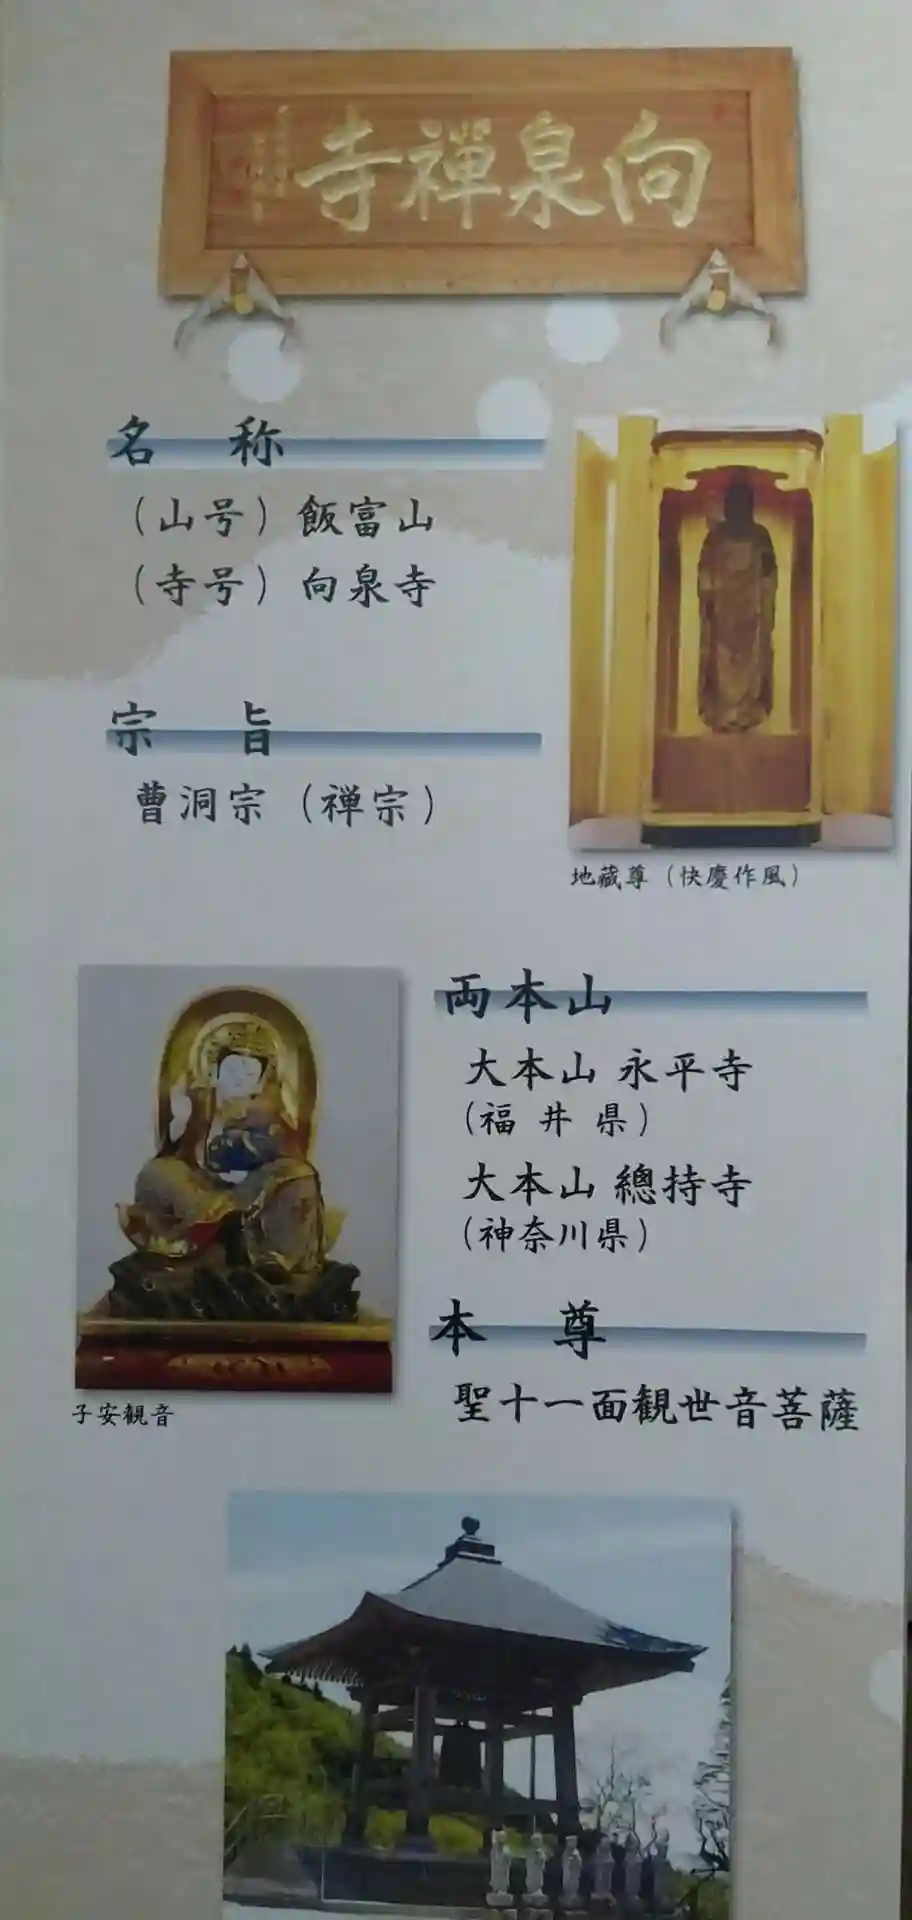 向泉禅寺
名　称
（山号）飯富山
（寺号）向泉寺
宗　旨
曹洞宗（禅宗）
地蔵尊（快慶作風）
両本山
大本山 永平寺
（福 井 県）
大本山 總持寺
（神奈川県）
本　尊
聖十一面観世音菩薩
子安観音